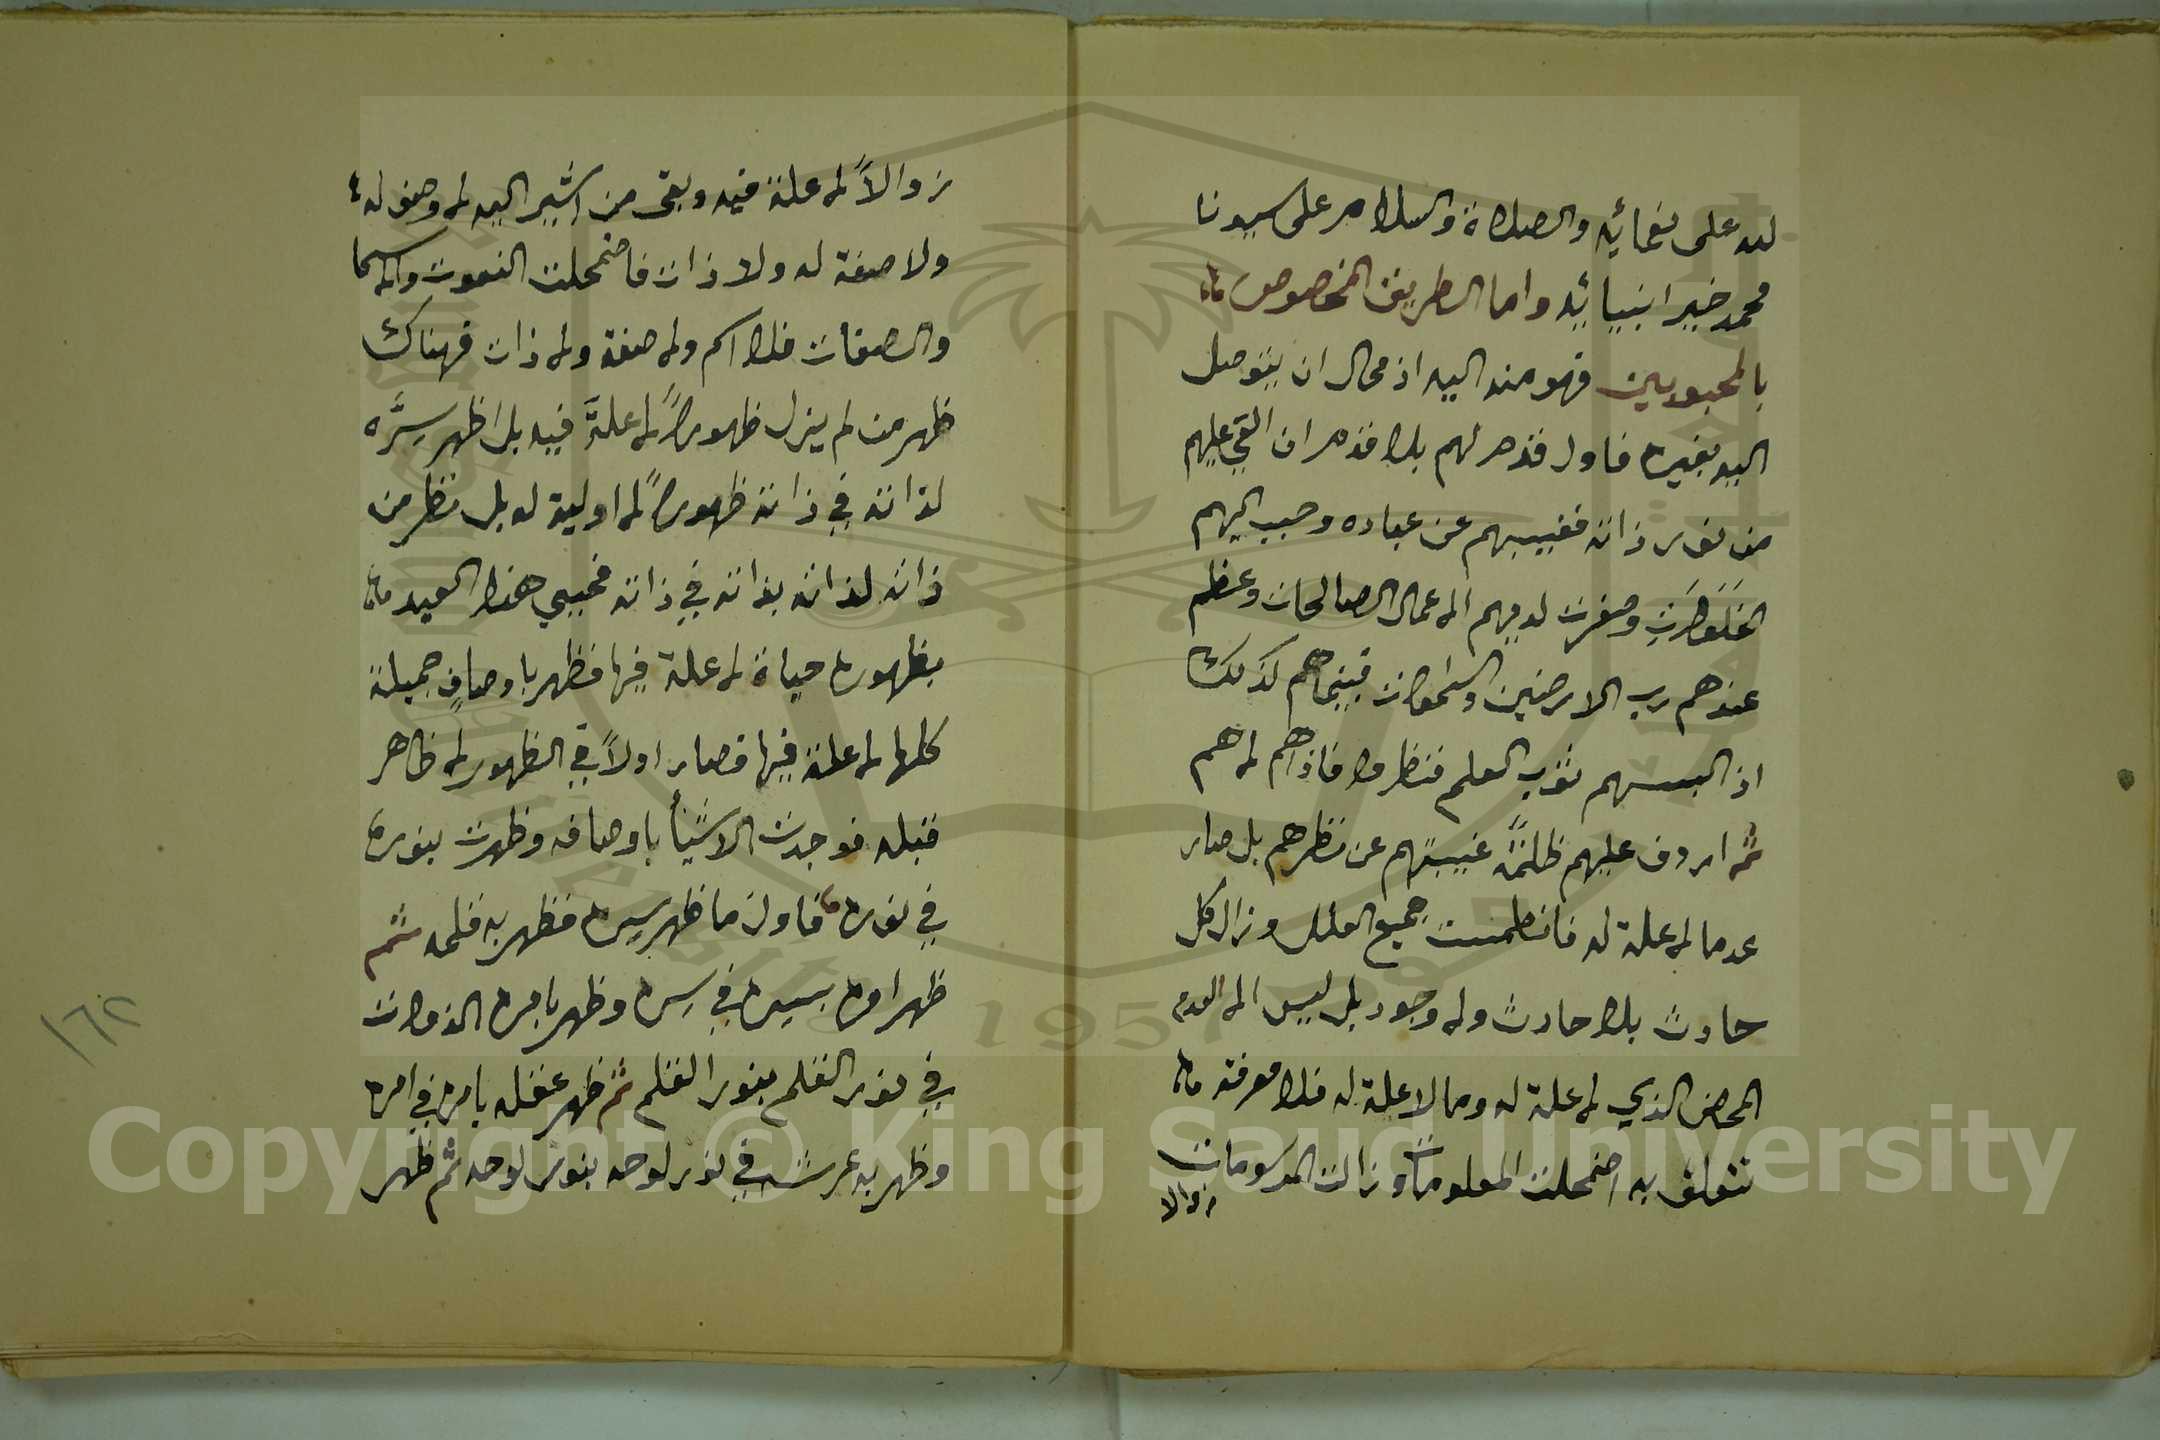 لله على نعمائه والصلاة والسلام على سيدنا
محمد خير انبيائه واما الطريق المخصوص
بالمحبوبين فهو منه اليه اذ محال ان يتوصل
اليه بغيره فاول قدم لهم بلا قدم ان القي عليهم
من نور ذاته فغيبهم عن عباده وحبب اليهم
الخلوات وصغرت لديهم الاعمال الصالحات وعظم
عندهم رب الارضين والسموات فبينما هم كذلك
اذ البسهم ثوب العدم فنظروا فاذا هم لا هم
ثم اردف عليهم ظلمة غيبتهم عن نظرهم بل صار
عدما لا علة له فانطمست جميع العلل وزال كل
حادث بلا حادث ولا وجود بل ليس الا العدم
المحض الذي لا علة له وما لا علة له فلا معرفة
تتعلق به اضمحلت المعلومات وزالت المرسومات
زوالا
زوالاً لا علة فيه وبقى من اشير اليه لا وصف له
ولا صفة له ولا ذات فاضمحلت النعوت والاسما
والصفات فلا اسم ولا صفة ولا ذات فهناك
ظهر من لم يزل ظهوراً لا علةَ فيه بل اظهر سِرَّه
لذاته في ذاته ظهوراً لا اولية له بل نظر من
ذاته لذاته بذاته في ذاته فحيي هذا العبد
بظهوره حياة لا علة فيها فظهر باوصافٍ جميلة
كلها لا علة فيها فصار اولاً في الظهور لا ظاهر
قبله فوجدت الاشيأ باوصافه وظهرت بنوره
في نوره فاول ما ظهر سره فظهر به قلمه ثم
ظهر امره بسره في سره وظهر بامره الذوات
في نور القلم بنور القلم ثم ظهر عقله بامره في امره
وظهر به عرشه في نور لوحه بنور لوحه ثم ظهر
١٦٢
Copyright © King Saud University
1957